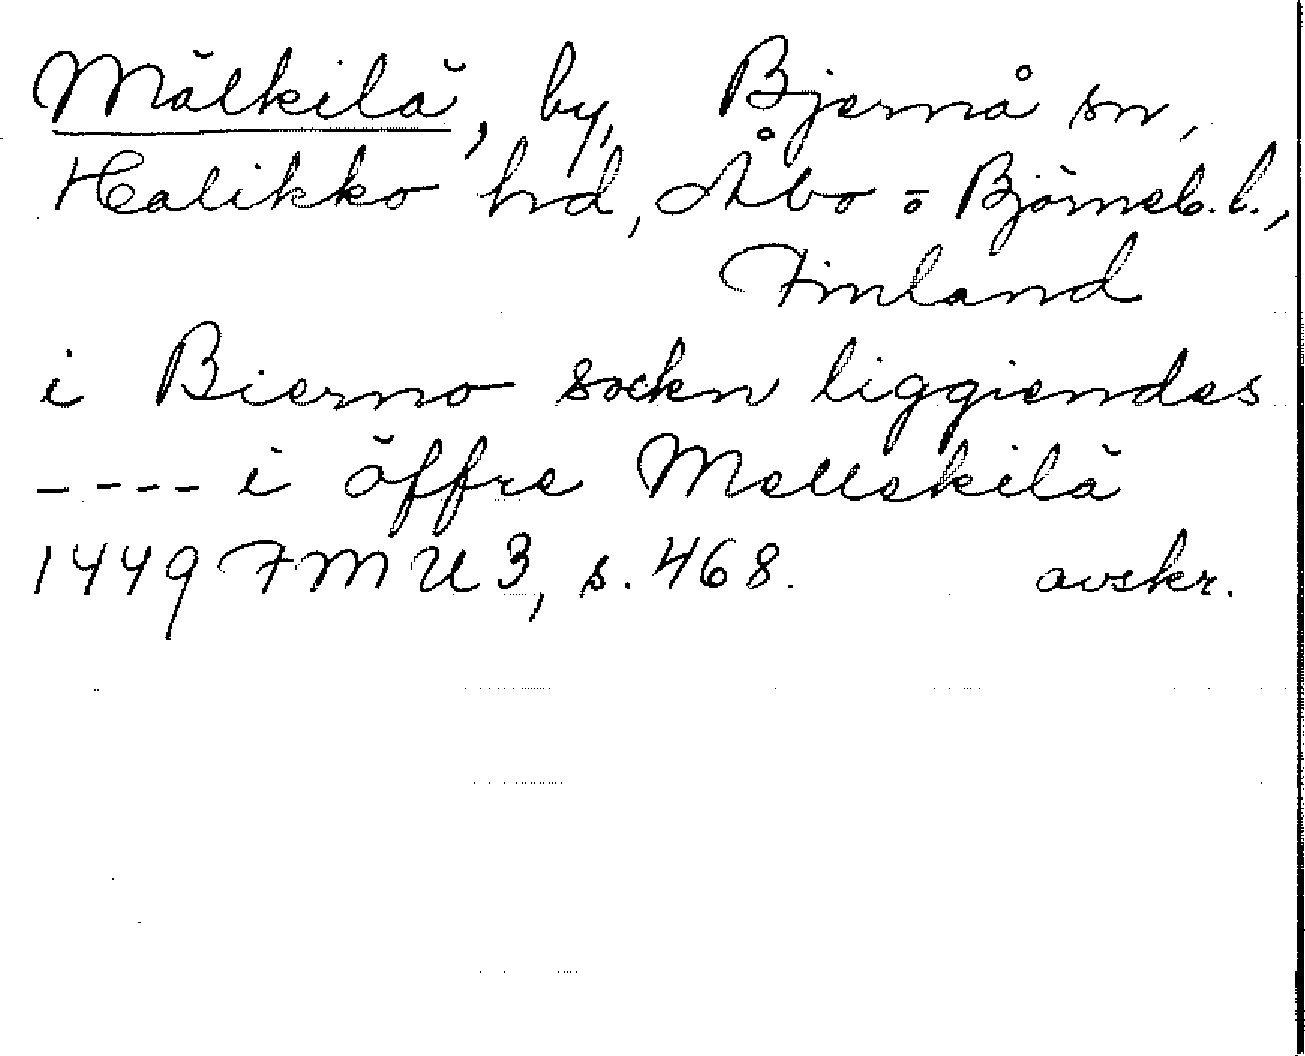 Mälkilä, by, Bjernå sn,
Halikko hd, Åbo o Björneb. l.,
Finland
i Bierno sockn liggiendes
---- i öffre Mellekilä
1449 FMU 3, s. 468. avskr.